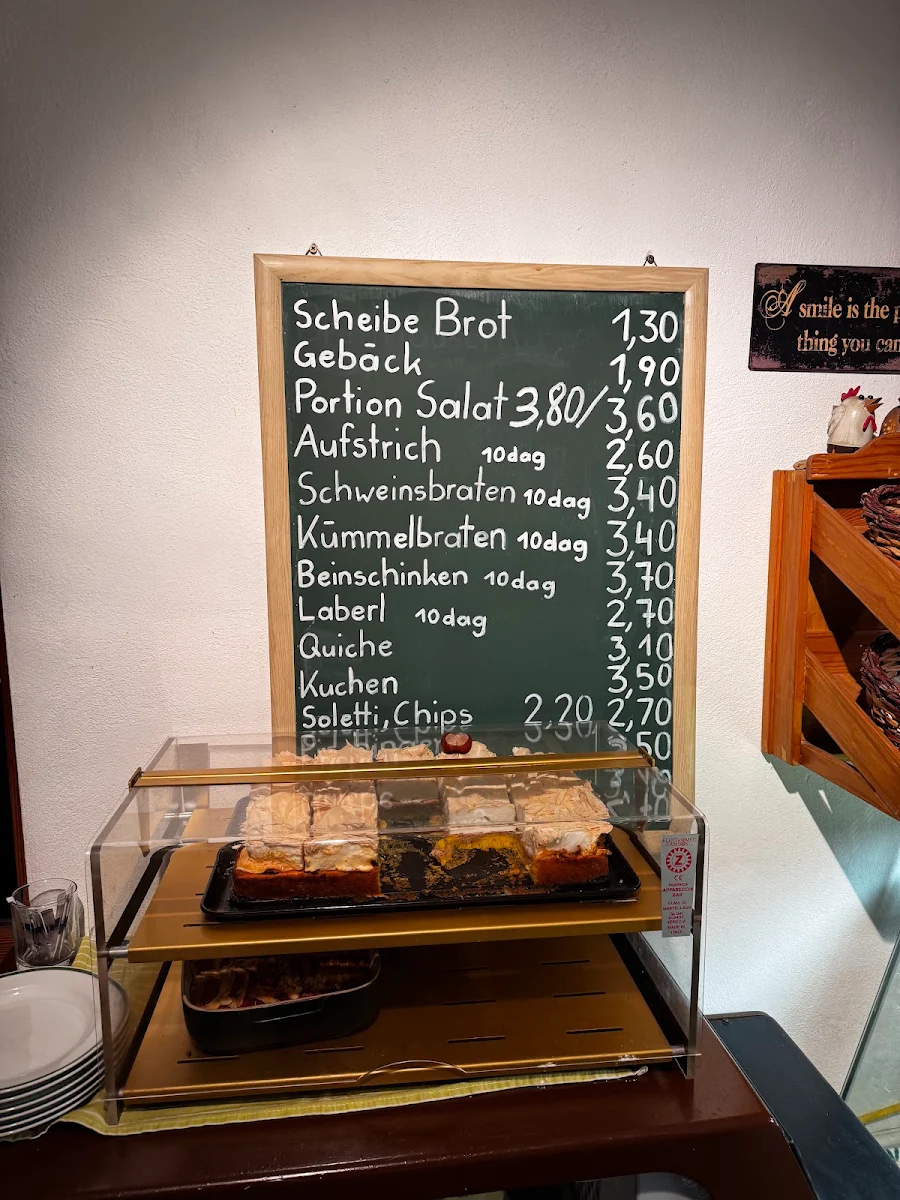 Scheibe Brot 1,30
Gebäck 1,90
Portion Salat 3,80/3,60
Aufstrich 10dag 2,60
Schweinsbraten 10dag 3,40
Kümmelbraten 10dag 3,40
Beinschinken 10dag 3,70
Laberl 10dag 2,70
Quiche 3,10
Kuchen 3,50
Soletti, Chips 2,20 2,70
50
A smile is the
thing you can
Z
CE